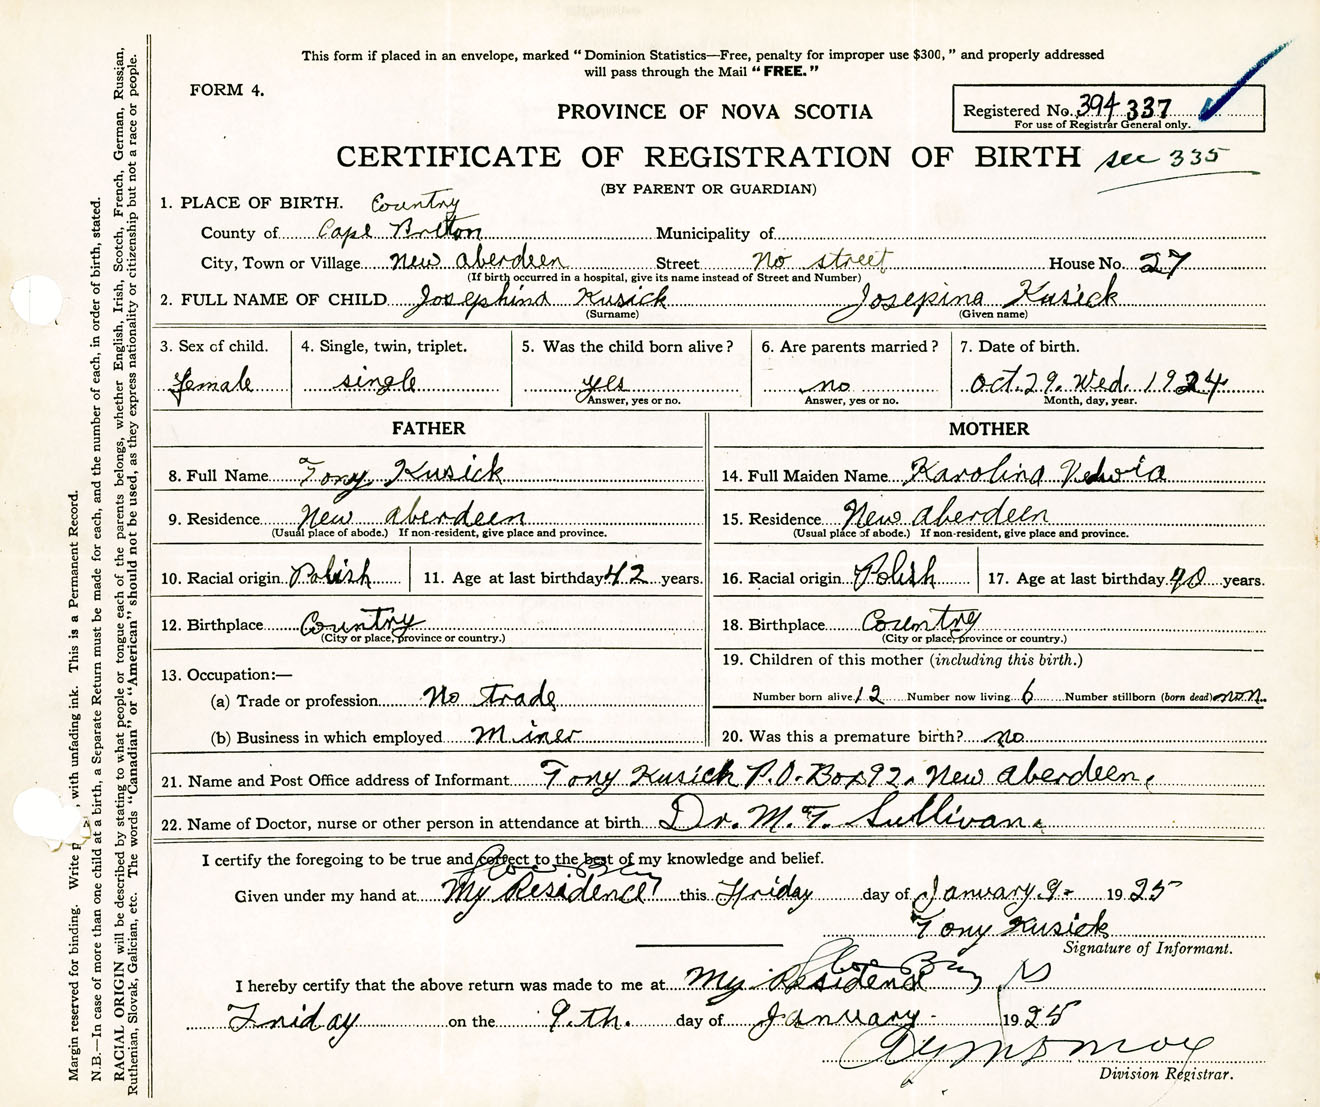 This form if placed in an envelope, marked “Dominion Statistics—Free, penalty for improper use $300,” and properly addressed
will pass through the Mail “FREE.”
FORM 4.
PROVINCE OF NOVA SCOTIA
Registered No. 394 337
For use of Registrar General only.
CERTIFICATE OF REGISTRATION OF BIRTH see 335
(BY PARENT OR GUARDIAN)
1. PLACE OF BIRTH. Country
County of Cape Breton Municipality of
City, Town or Village New aberdeen Street No street House No. 27
(If birth occurred in a hospital, give its name instead of Street and Number)
2. FULL NAME OF CHILD Josephina Kusick Josepina Kusick
(Surname) (Given name)
3. Sex of child. 4. Single, twin, triplet. 5. Was the child born alive? 6. Are parents married? 7. Date of birth.
female single yes no Oct. 29. Wed. 1924
Answer, yes or no. Answer, yes or no. Month, day, year.
FATHER MOTHER
8. Full Name Tony Kusick 14. Full Maiden Name Karolina
9. Residence New aberdeen 15. Residence New aberdeen
(Usual place of abode.) If non-resident, give place and province. (Usual place of abode.) If non-resident, give place and province.
10. Racial origin Polish 11. Age at last birthday 42 years. 16. Racial origin Polish 17. Age at last birthday 40 years.
12. Birthplace Country 18. Birthplace Country
(City or place, province or country.) (City or place, province or country.)
19. Children of this mother (including this birth.)
13. Occupation:—
(a) Trade or profession No trade Number born alive 12 Number now living 6 Number stillborn (born dead) non.
(b) Business in which employed Miner 20. Was this a premature birth? no
21. Name and Post Office address of Informant Tony Kusick P.O. Box 92. New aberdeen.
22. Name of Doctor, nurse or other person in attendance at birth Dr. M. T. Sullivan.
I certify the foregoing to be true and correct to the best of my knowledge and belief.
Glace Bay
Given under my hand at My Residence this Friday day of January 9- 1925
Tony Kusick
Signature of Informant.
Glace Bay NS
I hereby certify that the above return was made to me at My Residence
Friday on the 9.th. day of January 1925
Division Registrar.
Margin reserved for binding. Write , with unfading ink. This is a Permanent Record.
N.B.—In case of more than one child at a birth, a Separate Return must be made for each, and the number of each, in order of birth, stated.
RACIAL ORIGIN will be described by stating to what people or tongue each of the parents belongs, whether English, Irish, Scotch, French, German, Russian,
Ruthenian, Slovak, Galician, etc. The words “Canadian” or “American” should not be used, as they express nationality or citizenship but not a race or people.